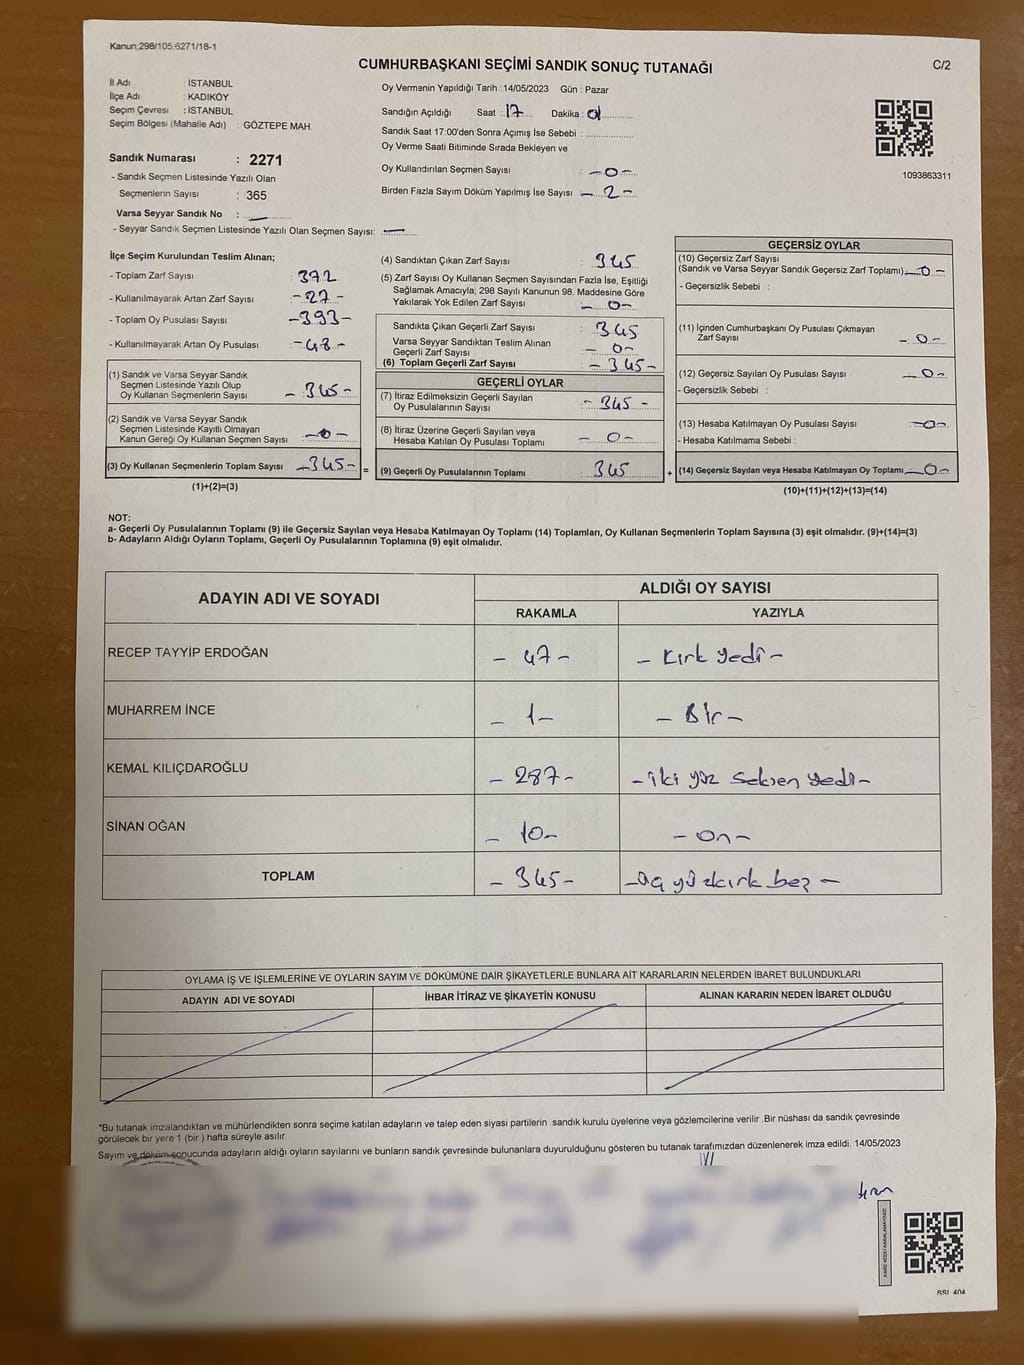 Kanun;298/105;6271/18-1
CUMHURBAŞKANI SEÇİMİ SANDIK SONUÇ TUTANAĞI
C/2
İl Adı : İSTANBUL
İlçe Adı : KADIKÖY
Seçim Çevresi : İSTANBUL
Seçim Bölgesi (Mahalle Adı) : GÖZTEPE MAH.
Sandık Numarası : 2271
- Sandık Seçmen Listesinde Yazılı Olan
Seçmenlerin Sayısı : 365
Varsa Seyyar Sandık No : —
- Seyyar Sandık Seçmen Listesinde Yazılı Olan Seçmen Sayısı: —
Oy Vermenin Yapıldığı Tarih : 14/05/2023 Gün : Pazar
Sandığın Açıldığı Saat : 17 Dakika : 01
Sandık Saat 17:00'den Sonra Açımış İse Sebebi :
Oy Verme Saati Bitiminde Sırada Bekleyen ve
Oy Kullandırılan Seçmen Sayısı : -0-
Birden Fazla Sayım Döküm Yapılmış İse Sayısı -2-
1093863311
İlçe Seçim Kurulundan Teslim Alınan;
- Toplam Zarf Sayısı : 372
- Kullanılmayarak Artan Zarf Sayısı : -27-
- Toplam Oy Pusulası Sayısı : -393-
- Kullanılmayarak Artan Oy Pusulası : -48-
(1) Sandık ve Varsa Seyyar Sandık
Seçmen Listesinde Yazılı Olup
Oy Kullanan Seçmenlerin Sayısı : -345-
(2) Sandık ve Varsa Seyyar Sandık
Seçmen Listesinde Kayıtlı Olmayan
Kanun Gereği Oy Kullanan Seçmen Sayısı : -0-
(3) Oy Kullanan Seçmenlerin Toplam Sayısı -345- =
(1)+(2)=(3)
(4) Sandıktan Çıkan Zarf Sayısı : 345
(5) Zarf Sayısı Oy Kullanan Seçmen Sayısından Fazla İse, Eşitliği
Sağlamak Amacıyla; 298 Sayılı Kanunun 98. Maddesine Göre
Yakılarak Yok Edilen Zarf Sayısı : -0-
Sandıkta Çıkan Geçerli Zarf Sayısı : 345
Varsa Seyyar Sandıktan Teslim Alınan
Geçerli Zarf Sayısı : -0-
(6) Toplam Geçerli Zarf Sayısı : -345-
GEÇERLİ OYLAR
(7) İtiraz Edilmeksizin Geçerli Sayılan
Oy Pusulalarının Sayısı : -345-
(8) İtiraz Üzerine Geçerli Sayılan veya
Hesaba Katılan Oy Pusulası Toplamı : -0-
(9) Geçerli Oy Pusulalarının Toplamı : 345 +
GEÇERSİZ OYLAR
(10) Geçersiz Zarf Sayısı
(Sandık ve Varsa Seyyar Sandık Geçersiz Zarf Toplamı) -0-
- Geçersizlik Sebebi :
(11) İçinden Cumhurbaşkanı Oy Pusulası Çıkmayan
Zarf Sayısı : -0-
(12) Geçersiz Sayılan Oy Pusulası Sayısı : -0-
- Geçersizlik Sebebi :
(13) Hesaba Katılmayan Oy Pusulası Sayısı : -0-
- Hesaba Katılmama Sebebi :
(14) Geçersiz Sayılan veya Hesaba Katılmayan Oy Toplamı -0-
(10)+(11)+(12)+(13)=(14)
NOT:
a- Geçerli Oy Pusulalarının Toplamı (9) ile Geçersiz Sayılan veya Hesaba Katılmayan Oy Toplamı (14) Toplamları, Oy Kullanan Seçmenlerin Toplam Sayısına (3) eşit olmalıdır. (9)+(14)=(3)
b- Adayların Aldığı Oyların Toplamı, Geçerli Oy Pusulalarının Toplamına (9) eşit olmalıdır.
ADAYIN ADI VE SOYADI
ALDIĞI OY SAYISI
RAKAMLA YAZIYLA
RECEP TAYYİP ERDOĞAN - 47 - - Kırk yedi -
MUHARREM İNCE - 1 - - Bir -
KEMAL KILIÇDAROĞLU - 287 - - iki yüz seksen yedi -
SİNAN OĞAN - 10 - - On -
TOPLAM - 345 - - üç yüzkırk beş -
OYLAMA İŞ VE İŞLEMLERİNE VE OYLARIN SAYIM VE DÖKÜMÜNE DAİR ŞİKAYETLERLE BUNLARA AİT KARARLARIN NELERDEN İBARET BULUNDUKLARI
ADAYIN ADI VE SOYADI İHBAR İTİRAZ VE ŞİKAYETİN KONUSU ALINAN KARARIN NEDEN İBARET OLDUĞU
*Bu tutanak imzalandıktan ve mühürlendikten sonra seçime katılan adayların ve talep eden siyasi partilerin sandık kurulu üyelerine veya gözlemcilerine verilir .Bir nüshası da sandık çevresinde
görülecek bir yere 1 (bir ) hafta süreyle asılır.
Sayım ve döküm sonucunda adayların aldığı oyların sayılarını ve bunların sandık çevresinde bulunanlara duyurulduğunu gösteren bu tutanak tarafımızdan düzenlenerek imza edildi. 14/05/2023